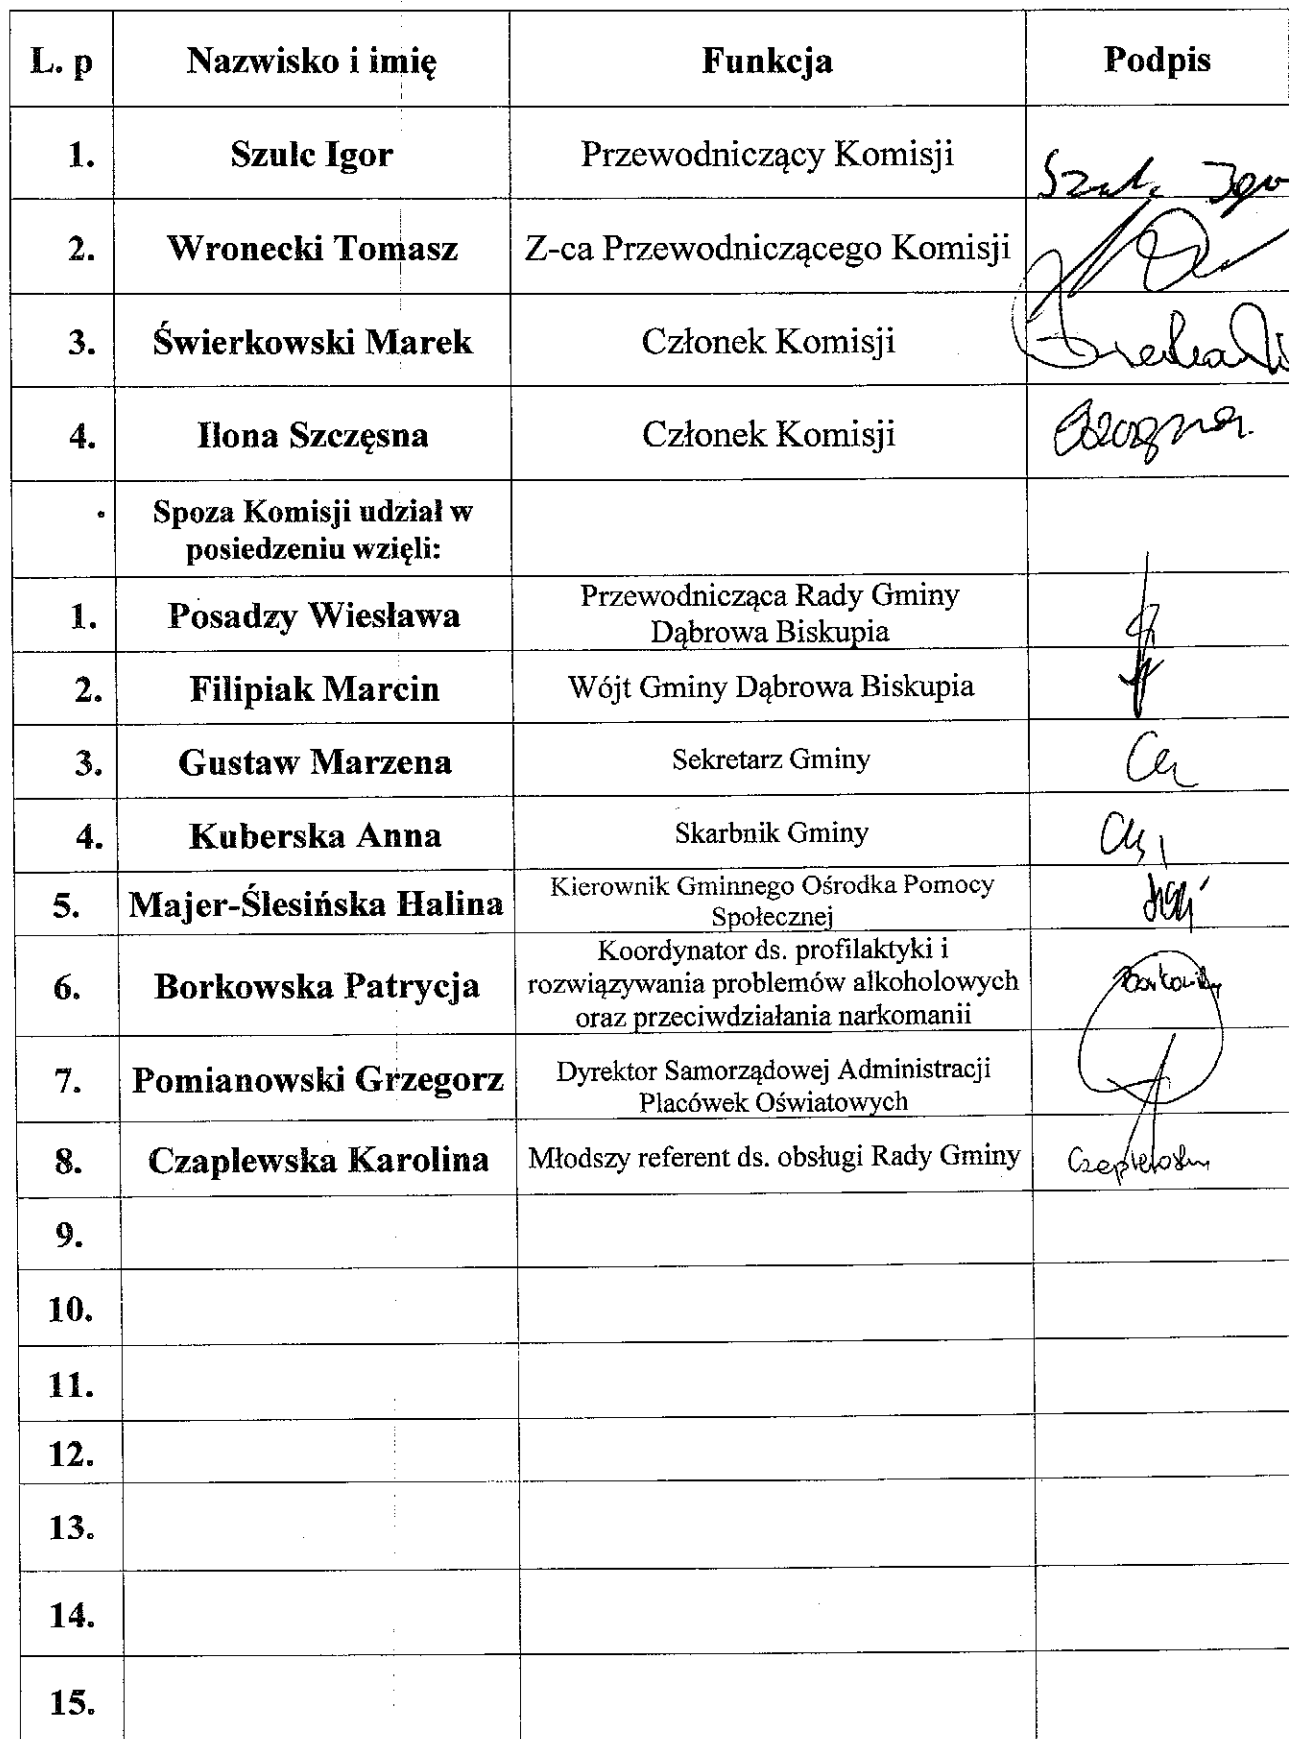 L. p Nazwisko i imię Funkcja Podpis
1. Szulc Igor Przewodniczący Komisji Szulc Igor
2. Wronecki Tomasz Z-ca Przewodniczącego Komisji
3. Świerkowski Marek Członek Komisji
4. Ilona Szczęsna Członek Komisji
Spoza Komisji udział w
posiedzeniu wzięli:
1. Posadzy Wiesława Przewodnicząca Rady Gminy
Dąbrowa Biskupia
2. Filipiak Marcin Wójt Gminy Dąbrowa Biskupia
3. Gustaw Marzena Sekretarz Gminy
4. Kuberska Anna Skarbnik Gminy
5. Majer-Ślesińska Halina Kierownik Gminnego Ośrodka Pomocy
Społecznej
6. Borkowska Patrycja Koordynator ds. profilaktyki i
rozwiązywania problemów alkoholowych
oraz przeciwdziałania narkomanii
7. Pomianowski Grzegorz Dyrektor Samorządowej Administracji
Placówek Oświatowych
8. Czaplewska Karolina Młodszy referent ds. obsługi Rady Gminy
9.
10.
11.
12.
13.
14.
15.